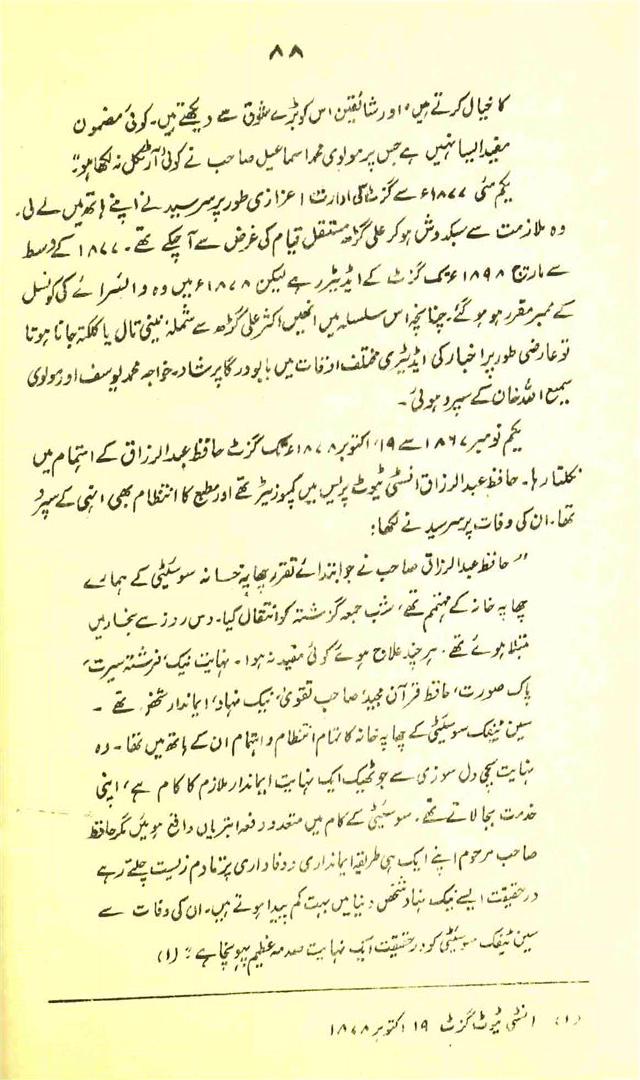 ۸۸
کا خیال کرتے ہیں، اور شائقین اس کو بڑے شوق سے دیکھتے ہیں۔ کوئی مضمون
مفید ایسا نہیں ہے جس پر مولوی محمد اسماعیل صاحب نے کوئی آرٹیکل نہ لکھا ہو۔"
یکم مئی ۱۸۷۷ء سے گزٹ کی ادارت اعزازی طور پر سرسید نے اپنے ہاتھ میں لے لی۔
وہ ملازمت سے سبکدوش ہو کر علی گڑھ مستقل قیام کی غرض سے آ چکے تھے۔ ۱۸۷۷ کے وسط
سے مارچ ۱۸۹۸ء تک گزٹ کے ایڈیٹر رہے لیکن ۱۸۷۸ء میں وہ وائسرائے کی کونسل
کے ممبر مقرر ہو گئے۔ چنانچہ اس سلسلہ میں انھیں اکثر علی گڑھ سے شملہ نینی تال یا کلکتہ جانا ہوتا
تو عارضی طور پر اخبار کی ایڈیٹری مختلف اوقات میں بابو درگا پرشاد۔ خواجہ محمد یوسف اور مولوی
سمیع اللہ خان کے سپرد ہوئی۔
یکم نومبر ۱۸۶۷ سے ۱۹، اکتوبر ۱۸۷۸ء تک گزٹ حافظ عبدالرزاق کے اہتمام میں
نکلتا رہا۔ حافظ عبدالرزاق انسٹی ٹیوٹ پریس میں کمپوزیٹر تھے اور مطبع کا انتظام بھی انہی کے سپرد
تھا۔ ان کی وفات پر سرسید نے لکھا:
"حافظ عبدالرزاق صاحب نے جو ابتدائے تقرر چھاپہ خانہ سوسئیٹی کے ہمارے
چھاپہ خانہ کے مہتمم تھے، شب جمعہ گزشتہ کو انتقال کیا۔ دس روز سے بخار میں
مبتلا ہوئے تھے۔ ہر چند علاج ہوئے کوئی مفید نہ ہوا۔ نہایت نیک، فرشتہ سیرت،
پاک صورت، حافظ قرآن مجید، صاحب تقویٰ، نیک نہاد، ایماندار شخص تھے۔
سین ٹیفک سوسئیٹی کے چھاپہ خانہ کا تمام انتظام و اہتمام ان کے ہاتھ میں تھا۔ وہ
نہایت سچی دل سوزی سے جو ٹھیک ایک نہایت ایماندار ملازم کا کام ہے، اپنی
خدمت بجا لاتے تھے۔ سوسئیٹی کے کام میں متعدد دفعہ ابتریاں واقع ہوئیں مگر حافظ
صاحب مرحوم اپنے ایک ہی طریقۂ ایمانداری و وفاداری پر تا دم زیست چلتے رہے
درحقیقت ایسے نیک نہاد شخص دنیا میں بہت کم پیدا ہوتے ہیں۔ ان کی وفات سے
سین ٹیفک سوسئیٹی کو درحقیقت ایک نہایت صدمہ عظیم پہونچا ہے۔" (۱)
(۱) انسٹی ٹیوٹ گزٹ ۱۹ اکتوبر ۱۸۷۸